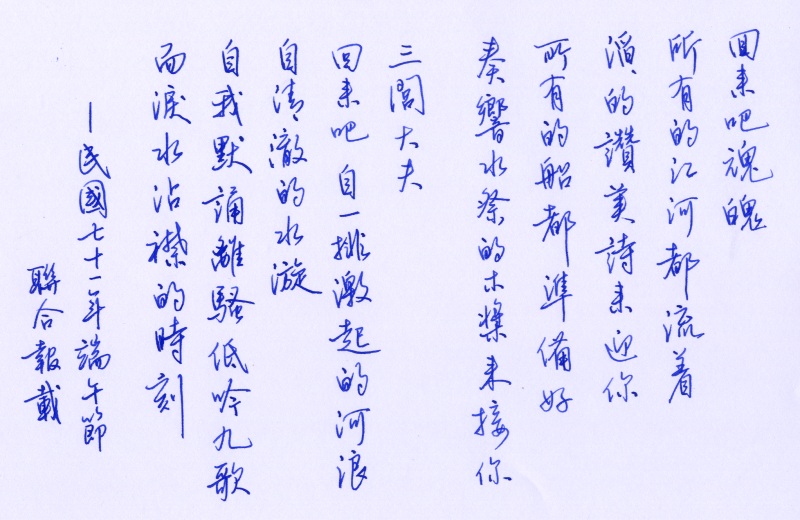 回來吧魂魄
所有的江河都流着
滔滔的讚美詩來迎你
所有的船都準備好
奏響水祭的木槳來接你
三閭大夫
回來吧 自一排激起的河浪
自清清澈的水漩
自我默誦離騷低吟九歌
而淚水沾襟的時刻
—民國七十一年端午節
聯合報載